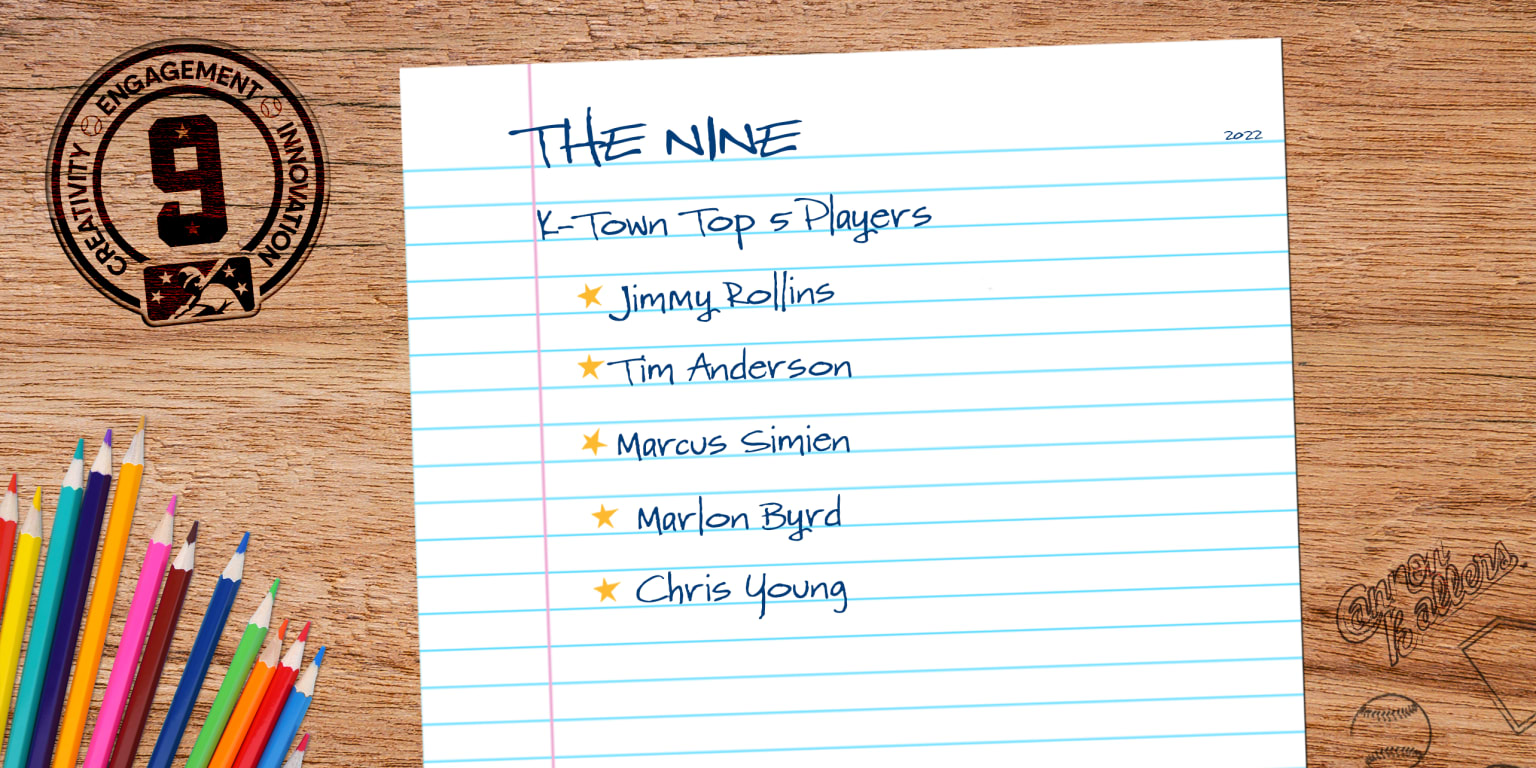 CREATIVITY ENGAGEMENT INNOVATION
9
THE NINE
2022
K-Town Top 5 Players
Jimmy Rollins
Tim Anderson
Marcus Simien
Marlon Byrd
Chris Young
Cannon
Ballers